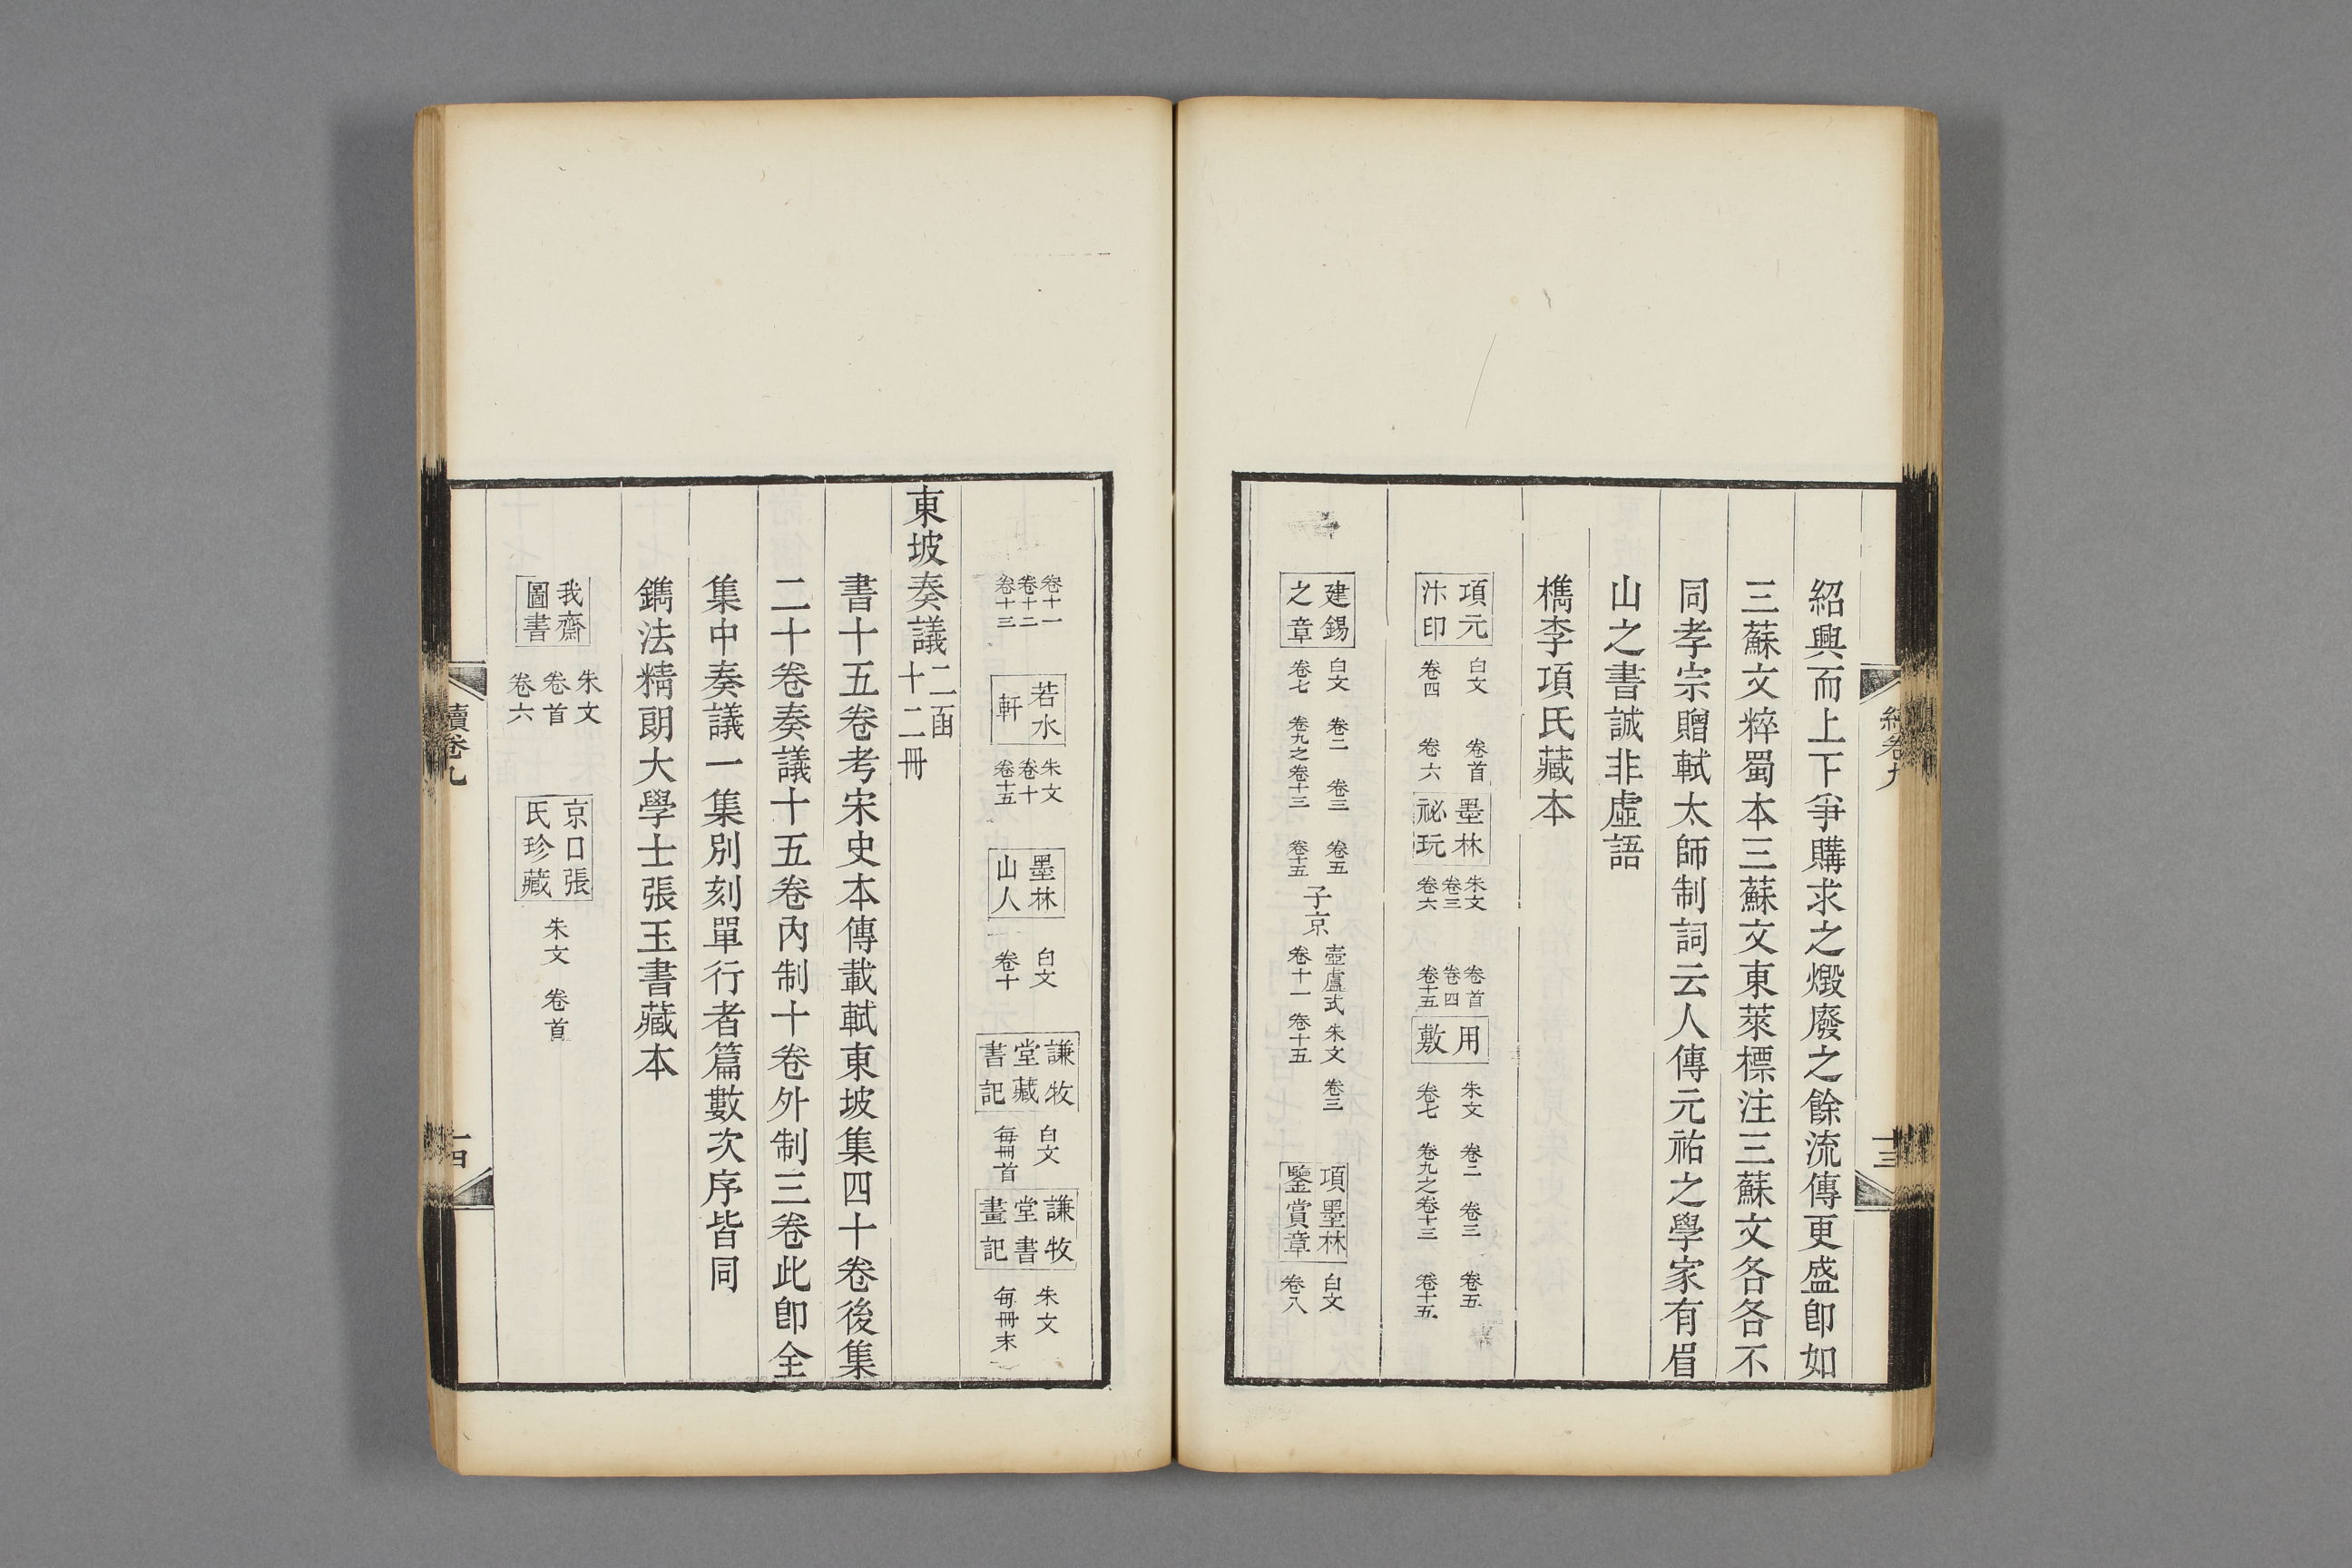 紹興而上下爭購求之燬廢之餘流傳更盛卽如
三蘇文粹蜀本三蘇文東萊標注三蘇文各各不
同孝宗贈軾太師制詞云人傳元祐之學家有眉
山之書誠非虛語
檇李項氏藏本
項元汴印 白文 卷首 卷四 卷六
墨林祕玩 朱文 卷三 卷六 卷首 卷四 卷十五
用敷 朱文 卷二 卷三 卷五 卷七 卷九之卷十三 卷十五
建錫之章 白文 卷二 卷三 卷五 卷七 卷九之卷十三 卷十五
子京 壺盧式 朱文 卷三 卷十一 卷十五
項墨林鑒賞章 白文 卷八
續卷九 十三
卷十一 卷十二 卷十三
若水軒 朱文 卷十 卷十五
墨林山人 白文 卷十
謙牧堂藏書記 白文 每冊首
謙牧堂書畫記 朱文 每冊末
東坡奏議 二函 十二冊
書十五卷考宋史本傳載軾東坡集四十卷後集
二十卷奏議十五卷內制十卷外制三卷此卽全
集中奏議一集別刻單行者篇數次序皆同
鐫法精朗大學士張玉書藏本
我齋圖書 朱文 卷首 卷六
京口張氏珍藏 朱文 卷首
續卷九 十四